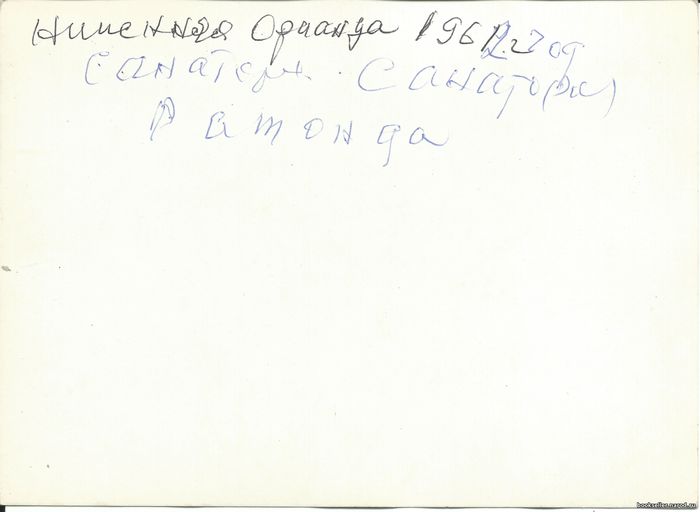 Нижняя Орианда 1962 г год
Санатори Санатори
Ратонда
bookseller.narod.ru